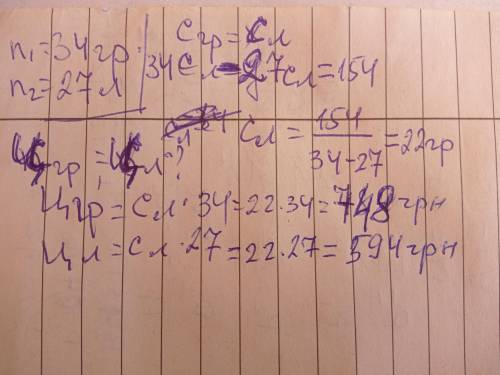 n₁=34гр
n₂=27л
Сгр=Сл
34Сл-27Сл=154
Сл = 154/(34-27) = 22гр
Цгр = Цл?
Цгр = Сл·34=22·34=748грн
Цл = Сл·27=22·27=594грн